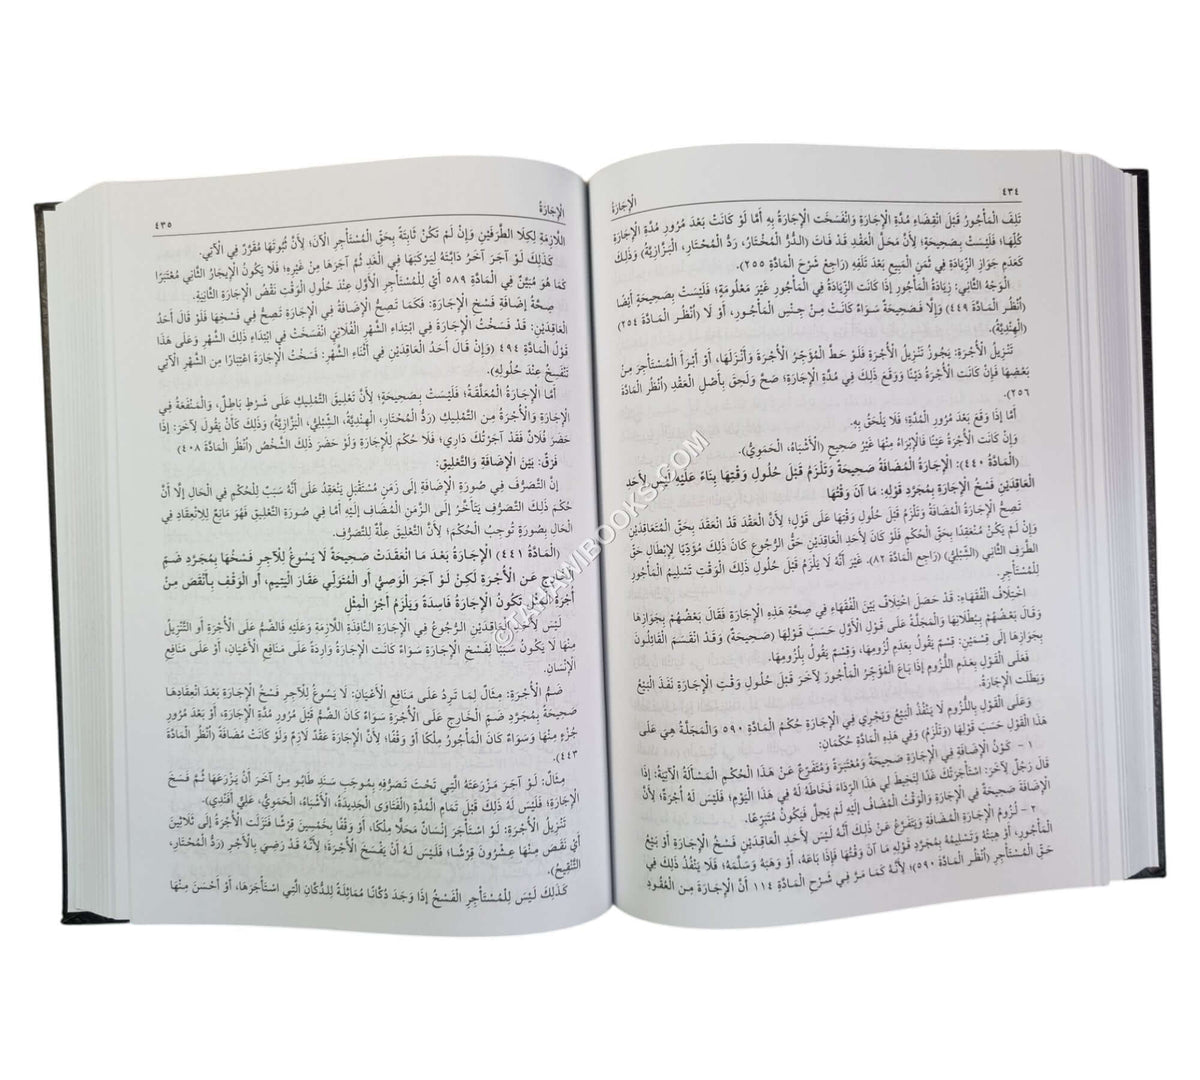 ٤٣٤
الْإِجَارَةُ
تَلِفَ الْمَأْجُورُ قَبْلَ انْقِضَاءِ مُدَّةِ الْإِجَارَةِ وَانْفَسَخَتِ الْإِجَارَةُ بِهِ أَمَّا لَوْ كَانَتْ بَعْدَ مُرُورِ مُدَّةِ الْإِجَارَةِ
كُلِّهَا؛ فَلَيْسَتْ بِصَحِيحَةٍ؛ لِأَنَّ مَحَلَّ الْعَقْدِ قَدْ فَاتَ (الدُّرُّ الْمُخْتَارُ، رَدُّ الْمُحْتَارِ، الْبَزَّازِيَّةُ) وَذَلِكَ
كَعَدَمِ جَوَازِ الزِّيَادَةِ فِي ثَمَنِ الْمَبِيعِ بَعْدَ تَلَفِهِ (رَاجِعْ شَرْحَ الْمَادَّةِ ٢٥٥).
الْوَجْهُ الثَّانِي: زِيَادَةُ الْمَأْجُورِ إذَا كَانَتِ الزِّيَادَةُ فِي الْمَأْجُورِ غَيْرَ مَعْلُومَةٍ؛ فَلَيْسَتْ بِصَحِيحَةٍ أَيْضًا
(أُنْظُرِ الْمَادَّةَ ٤٤٩) وَإِلَّا فَصَحِيحَةٌ سَوَاءٌ كَانَتْ مِنْ جِنْسِ الْمَأْجُورِ، أَوْ لَا (أُنْظُرِ الْمَادَّةَ ٢٥٤)
(الْهِنْدِيَّةُ).
تَنْزِيلُ الْأُجْرَةِ: يَجُوزُ تَنْزِيلُ الْأُجْرَةِ فَلَوْ حَطَّ الْمُؤَجِّرُ الْأُجْرَةَ وَأَنْزَلَهَا، أَوْ أَبْرَأَ الْمُسْتَأْجِرَ مِنْ
بَعْضِهَا فَإِنْ كَانَتِ الْأُجْرَةُ دَيْنًا وَوَقَعَ ذَلِكَ فِي مُدَّةِ الْإِجَارَةِ؛ صَحَّ وَلَحِقَ بِأَصْلِ الْعَقْدِ (أُنْظُرِ الْمَادَّةَ
٢٥٦).
أَمَّا إذَا وَقَعَ بَعْدَ مُرُورِ الْمُدَّةِ؛ فَلَا يَلْحَقُ بِهِ.
وَإِنْ كَانَتِ الْأُجْرَةُ عَيْنًا فَالْإِبْرَاءُ مِنْهَا غَيْرُ صَحِيحٍ (الْأَشْبَاهُ، الْحَمَوِيُّ).
(الْمَادَّةُ ٤٤٠): الْإِجَارَةُ الْمُضَافَةُ صَحِيحَةٌ وَتَلْزَمُ قَبْلَ حُلُولِ وَقْتِهَا بِنَاءً عَلَيْهِ لَيْسَ لِأَحَدِ
الْعَاقِدَيْنِ فَسْخُ الْإِجَارَةِ بِمُجَرَّدِ قَوْلِهِ: مَا آنَ وَقْتُهَا
تَصِحُّ الْإِجَارَةُ الْمُضَافَةُ وَتَلْزَمُ قَبْلَ حُلُولِ وَقْتِهَا عَلَى قَوْلٍ؛ لِأَنَّ الْعَقْدَ قَدْ انْعَقَدَ بِحَقِّ الْمُتَعَاقِدَيْنِ
وَإِنْ لَمْ يَكُنْ مُنْعَقِدًا بِحَقِّ الْحُكْمِ فَلَوْ كَانَ لِأَحَدِ الْعَاقِدَيْنِ حَقُّ الرُّجُوعِ كَانَ ذَلِكَ مُؤَدِّيًا لِإِبْطَالِ حَقِّ
الطَّرَفِ الثَّانِي (الشِّبْلِيُّ) (رَاجِعِ الْمَادَّةَ ٨٢). غَيْرَ أَنَّهُ لَا يَلْزَمُ قَبْلَ حُلُولِ ذَلِكَ الْوَقْتِ تَسْلِيمُ الْمَأْجُورِ
لِلْمُسْتَأْجِرِ.
اخْتِلَافُ الْفُقَهَاءِ: قَدْ حَصَلَ اخْتِلَافٌ بَيْنَ الْفُقَهَاءِ فِي صِحَّةِ هَذِهِ الْإِجَارَةِ فَقَالَ بَعْضُهُمْ بِجَوَازِهَا
وَقَالَ بَعْضُهُمْ بِبُطْلَانِهَا وَالْمَجَلَّةُ عَلَى قَوْلِ الْأَوَّلِ حَسَبَ قَوْلِهَا (صَحِيحَةٌ) وَقَدْ انْقَسَمَ الْقَائِلُونَ
بِجَوَازِهَا إلَى قِسْمَيْنِ: قِسْمٌ يَقُولُ بِعَدَمِ لُزُومِهَا، وَقِسْمٌ يَقُولُ بِلُزُومِهَا.
فَعَلَى الْقَوْلِ بِعَدَمِ اللُّزُومِ إذَا بَاعَ الْمُؤَجِّرُ الْمَأْجُورَ لِآخَرَ قَبْلَ حُلُولِ وَقْتِ الْإِجَارَةِ نَفَذَ الْبَيْعُ
وَبَطَلَتِ الْإِجَارَةُ.
وَعَلَى الْقَوْلِ بِاللُّزُومِ لَا يَنْفُذُ الْبَيْعُ وَيَجْرِي فِي الْإِجَارَةِ حُكْمُ الْمَادَّةِ ٥٩٠ وَالْمَجَلَّةُ هِيَ عَلَى
هَذَا الْقَوْلِ حَسَبَ قَوْلِهَا (وَتَلْزَمُ) وَفِي هَذِهِ الْمَادَّةِ حُكْمَانِ:
١ - كَوْنُ الْإِضَافَةِ فِي الْإِجَارَةِ صَحِيحَةً وَمُعْتَبَرَةً وَمُتَفَرِّعٌ عَنْ هَذَا الْحُكْمِ الْمَسْأَلَةُ الْآتِيَةُ: إذَا
قَالَ رَجُلٌ لِآخَرَ: اسْتَأْجَرْتُكَ غَدًا لِتَخِيطَ لِي هَذَا الرِّدَاءَ فَخَاطَهُ لَهُ فِي هَذَا الْيَوْمِ؛ فَلَيْسَ لَهُ أُجْرَةٌ؛ لِأَنَّ
الْإِضَافَةَ صَحِيحَةٌ فِي الْإِجَارَةِ وَالْوَقْتُ الْمُضَافُ إلَيْهِ لَمْ يَحِلَّ فَيَكُونُ مُتَبَرِّعًا.
٢ - لُزُومُ الْإِجَارَةِ الْمُضَافَةِ وَيَتَفَرَّعُ عَنْ ذَلِكَ أَنَّهُ لَيْسَ لِأَحَدِ الْعَاقِدَيْنِ فَسْخُ الْإِجَارَةِ أَوْ بَيْعُ
الْمَأْجُورِ، أَوْ هِبَتُهُ وَتَسْلِيمُهُ بِمُجَرَّدِ قَوْلِهِ مَا آنَ وَقْتُهَا فَإِذَا بَاعَهُ، أَوْ وَهَبَهُ وَسَلَّمَهُ؛ فَلَا يَنْفُذُ ذَلِكَ فِي
حَقِّ الْمُسْتَأْجِرِ (أُنْظُرِ الْمَادَّةَ ٥٩٠)؛ لِأَنَّهُ كَمَا مَرَّ فِي شَرْحِ الْمَادَّةِ ١١٤ أَنَّ الْإِجَارَةَ مِنَ الْعُقُودِ
الْإِجَارَةُ
٤٣٥
اللَّازِمَةِ لِكِلَا الطَّرَفَيْنِ وَإِنْ لَمْ تَكُنْ ثَابِتَةً بِحَقِّ الْمُسْتَأْجِرِ الْآنَ؛ لِأَنَّ ثُبُوتَهَا مُقَرَّرٌ فِي الْآتِي.
كَذَلِكَ لَوْ آجَرَ آخَرَ دَابَّتَهُ لِيَرْكَبَهَا فِي الْغَدِ ثُمَّ آجَرَهَا مِنْ غَيْرِهِ؛ فَلَا يَكُونُ الْإِيجَارُ الثَّانِي مُعْتَبَرًا
كَمَا هُوَ مُبَيَّنٌ فِي الْمَادَّةِ ٥٨٩ أَيْ لِلْمُسْتَأْجِرِ الْأَوَّلِ عِنْدَ حُلُولِ الْوَقْتِ نَقْضُ الْإِجَارَةِ الثَّانِيَةِ.
صِحَّةُ إضَافَةِ فَسْخِ الْإِجَارَةِ: فَكَمَا تَصِحُّ الْإِضَافَةُ فِي الْإِجَارَةِ تَصِحُّ فِي فَسْخِهَا فَلَوْ قَالَ أَحَدُ
الْعَاقِدَيْنِ: قَدْ فَسَخْتُ الْإِجَارَةَ فِي ابْتِدَاءِ الشَّهْرِ الْفُلَانِيِّ انْفَسَخَتْ فِي ابْتِدَاءِ ذَلِكَ الشَّهْرِ وَعَلَى هَذَا
قَوْلُ الْمَادَّةِ ٤٩٤ (وَإِنْ قَالَ أَحَدُ الْعَاقِدَيْنِ فِي أَثْنَاءِ الشَّهْرِ: فَسَخْتُ الْإِجَارَةَ اعْتِبَارًا مِنَ الشَّهْرِ الْآتِي
تَنْفَسِخُ عِنْدَ حُلُولِهِ).
أَمَّا الْإِجَارَةُ الْمُعَلَّقَةُ؛ فَلَيْسَتْ بِصَحِيحَةٍ؛ لِأَنَّ تَعْلِيقَ التَّمْلِيكِ عَلَى شَرْطٍ بَاطِلٌ، وَالْمَنْفَعَةُ فِي
الْإِجَارَةِ وَالْأُجْرَةُ مِنَ التَّمْلِيكِ (رَدُّ الْمُحْتَارِ، الْهِنْدِيَّةُ، الشِّبْلِيُّ، الْبَزَّازِيَّةُ) وَذَلِكَ كَأَنْ يَقُولَ لِآخَرَ: إذَا
حَضَرَ فُلَانٌ فَقَدْ آجَرْتُكَ دَارِي؛ فَلَا حُكْمَ لِلْإِجَارَةِ وَلَوْ حَضَرَ ذَلِكَ الشَّخْصُ (أُنْظُرِ الْمَادَّةَ ٤٠٨)
فَرْقٌ: بَيْنَ الْإِضَافَةِ وَالتَّعْلِيقِ:
إنَّ التَّصَرُّفَ فِي صُورَةِ الْإِضَافَةِ إلَى زَمَنٍ مُسْتَقْبَلٍ يَنْعَقِدُ عَلَى أَنَّهُ سَبَبٌ لِلْحُكْمِ فِي الْحَالِ إلَّا أَنَّ
حُكْمَ ذَلِكَ التَّصَرُّفِ يَتَأَخَّرُ إلَى الزَّمَنِ الْمُضَافِ إلَيْهِ أَمَّا فِي صُورَةِ التَّعْلِيقِ فَهُوَ مَانِعٌ لِلِانْعِقَادِ فِي
الْحَالِ بِصُورَةٍ تُوجِبُ الْحُكْمَ؛ لِأَنَّ التَّعْلِيقَ عِلَّةٌ لِلتَّصَرُّفِ.
(الْمَادَّةُ ٤٤١) الْإِجَارَةُ بَعْدَ مَا انْعَقَدَتْ صَحِيحَةً لَا يَسُوغُ لِلْآجِرِ فَسْخُهَا بِمُجَرَّدِ ضَمِّ
عَنِ الْأُجْرَةِ لَكِنْ لَوْ آجَرَ الْوَصِيُّ أَوِ الْمُتَوَلِّي عَقَارَ الْيَتِيمِ، أَوِ الْوَقْفِ بِأَنْقَصَ مِنْ
أُجْرَةِ الْمِثْلِ تَكُونُ الْإِجَارَةُ فَاسِدَةً وَيَلْزَمُ أَجْرُ الْمِثْلِ
لَيْسَ لِأَحَدِ الْعَاقِدَيْنِ الرُّجُوعُ فِي الْإِجَارَةِ النَّافِذَةِ اللَّازِمَةِ وَعَلَيْهِ فَالضَّمُّ عَلَى الْأُجْرَةِ أَوِ التَّنْزِيلُ
مِنْهَا لَا يَكُونُ سَبَبًا لِفَسْخِ الْإِجَارَةِ سَوَاءٌ كَانَتِ الْإِجَارَةُ وَارِدَةً عَلَى مَنَافِعِ الْأَعْيَانِ، أَوْ عَلَى مَنَافِعِ
الْإِنْسَانِ.
ضَمُّ الْأُجْرَةِ: مِثَالٌ لِمَا تَرِدُ عَلَى مَنَافِعِ الْأَعْيَانِ: لَا يَسُوغُ لِلْآجِرِ فَسْخُ الْإِجَارَةِ بَعْدَ انْعِقَادِهَا
صَحِيحَةً بِمُجَرَّدِ ضَمِّ الْخَارِجِ عَلَى الْأُجْرَةِ سَوَاءٌ كَانَ الضَّمُّ قَبْلَ مُرُورِ مُدَّةِ الْإِجَارَةِ، أَوْ بَعْدَ مُرُورِ
جُزْءٍ مِنْهَا وَسَوَاءٌ كَانَ الْمَأْجُورُ مِلْكًا أَوْ وَقْفًا؛ لِأَنَّ الْإِجَارَةَ عَقْدٌ لَازِمٌ وَلَوْ كَانَتْ مُضَافَةً (أُنْظُرِ الْمَادَّةَ
٤٤٣).
مِثَالٌ: لَوْ آجَرَ مَزْرَعَتَهُ الَّتِي تَحْتَ تَصَرُّفِهِ بِمُوجَبِ سَنَدِ طَابُو مِنْ آخَرَ أَنْ يَزْرَعَهَا ثُمَّ فَسَخَ
الْإِجَارَةَ؛ فَلَيْسَ لَهُ ذَلِكَ قَبْلَ تَمَامِ الْمُدَّةِ (الْفَتَاوَى الْجَدِيدَةُ، الْأَشْبَاهُ، الْحَمَوِيُّ، عَلِيٌّ أَفَنْدِي).
تَنْزِيلُ الْأُجْرَةِ: لَوْ اسْتَأْجَرَ إنْسَانٌ مَحَلًّا مِلْكًا، أَوْ وَقْفًا بِخَمْسِينَ قِرْشًا فَنَزَلَتِ الْأُجْرَةُ إلَى ثَلَاثِينَ
أَيْ نَقَصَ مِنْهَا عِشْرُونَ قِرْشًا؛ فَلَيْسَ لَهُ أَنْ يَفْسَخَ الْأُجْرَةَ؛ لِأَنَّهُ قَدْ رَضِيَ بِالْأَجْرِ (رَدُّ الْمُحْتَارِ،
التَّنْقِيحُ).
كَذَلِكَ لَيْسَ لِلْمُسْتَأْجِرِ الْفَسْخُ إذَا وَجَدَ دُكَّانًا مُمَاثِلَةً لِلدُّكَّانِ الَّتِي اسْتَأْجَرَهَا، أَوْ أَحْسَنَ مِنْهَا